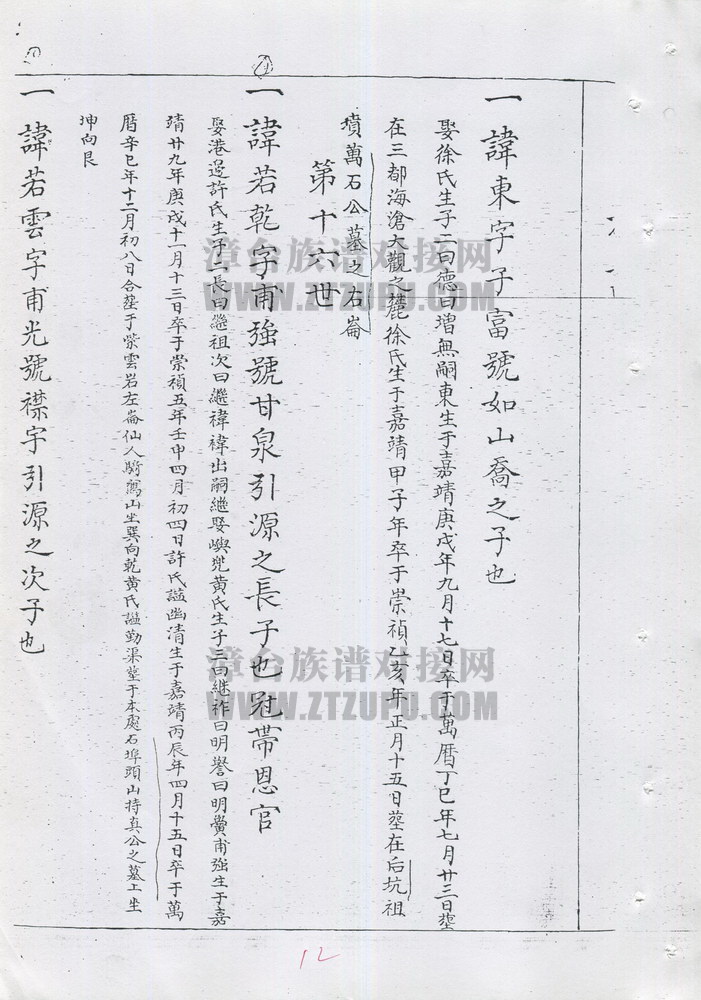 一諱東字子富號如山喬之子也
娶徐氏生子二曰德曰增無嗣東生于嘉靖庚戌年九月十七日卒于萬曆丁巳年七月廿三日塟
在三都海滄大觀之麓徐氏生于嘉靖甲子年卒于崇禎乙亥年正月十五日塟在后坑祖
墳萬石公墓之右崙
第十六世
一諱若乾字甫強號甘泉引源之長子也冠帶恩官
娶港邊許氏生子二長曰繼祖次曰繼禕禕出嗣繼娶嶼兜黄氏生子三曰継祚曰明譽曰明黌甫強生于嘉
靖廿九年庚戌十一月十三日卒于崇禎五年壬申四月初四日許氏諡幽清生于嘉靖丙辰年四月十五日卒于萬
曆辛巳年十二月初八日合塟于紫雲岩左崙仙人騎鶴山坐巽向乾黄氏諡勤渠塟于本處石埠頭山持真公之墓上坐
坤向艮
一諱若雲字甫光號襟宇引源之次子也
漳台族谱对接网
WWW.ZTZUPU.COM
漳台族谱对接网
WWW.ZTZUPU.COM
12